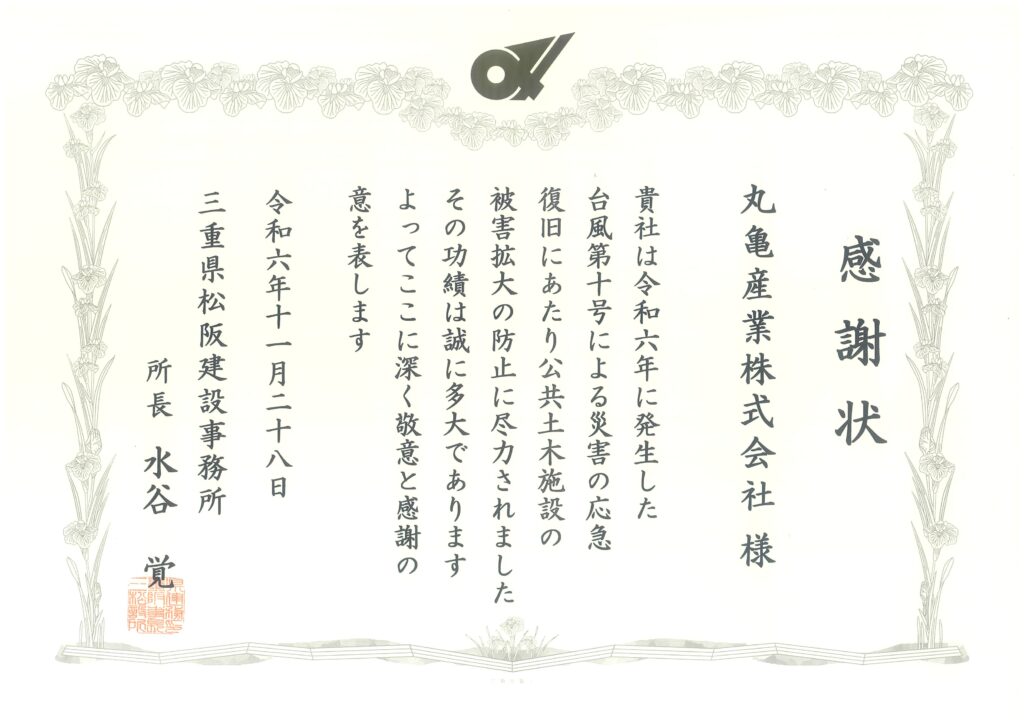 感謝状
丸亀産業株式会社 様
貴社は令和六年に発生した
台風第十号による災害の応急
復旧にあたり公共土木施設の
被害拡大の防止に尽力されました
その功績は誠に多大であります
よってここに深く敬意と感謝の
意を表します
令和六年十一月二十八日
三重県松阪建設事務所
所長 水谷 覚